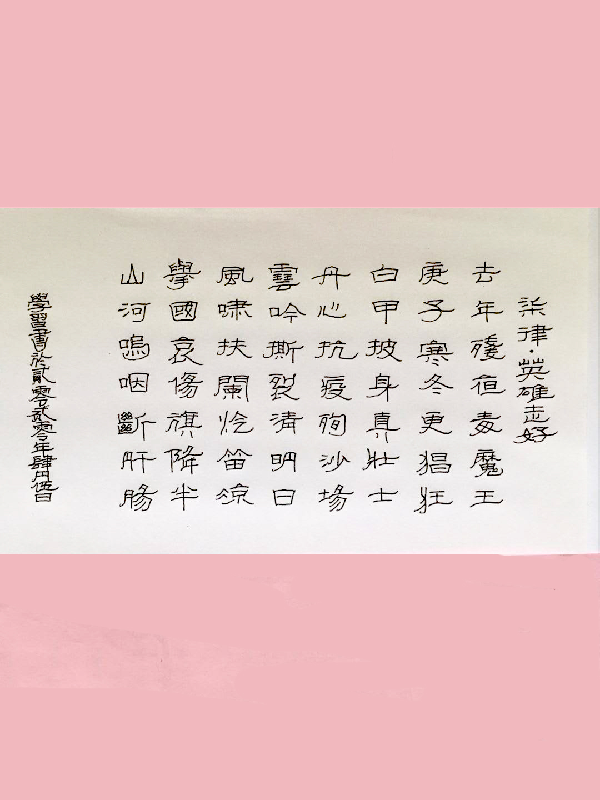 柒律·英雄走好
去年殘毒魔王
庚子寒冬更猖狂
白甲披身真壯士
丹心抗疫殉沙場
雲吟撕裂清明日
風嘯扶闌笛涼
舉國哀傷旗降半
山河嗚咽斷肝腸
學習書於貳零貳零年肆月伍日